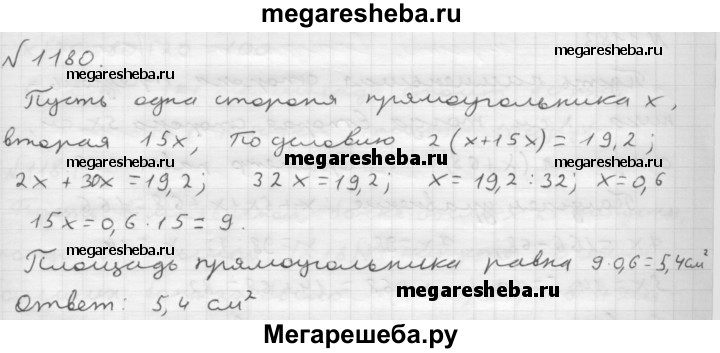 megaresheba.ru
№ 1180.
megaresheba.ru megaresheba.ru
Пусть одна сторона прямоугольника х,
вторая 15х, По условию 2(х+15х)=19,2;
megaresheba.ru megaresheba.ru megaresheba.ru
2х + 30х = 19,2; 32х=19,2; х=19,2:32; х=0,6
15х=0,6·15=9.
megaresheba.ru megaresheba.ru
Площадь прямоугольника равна 9·0,6=5,4см²
Ответ: 5,4 см²
megaresheba.ru
Мегарешеба.ру